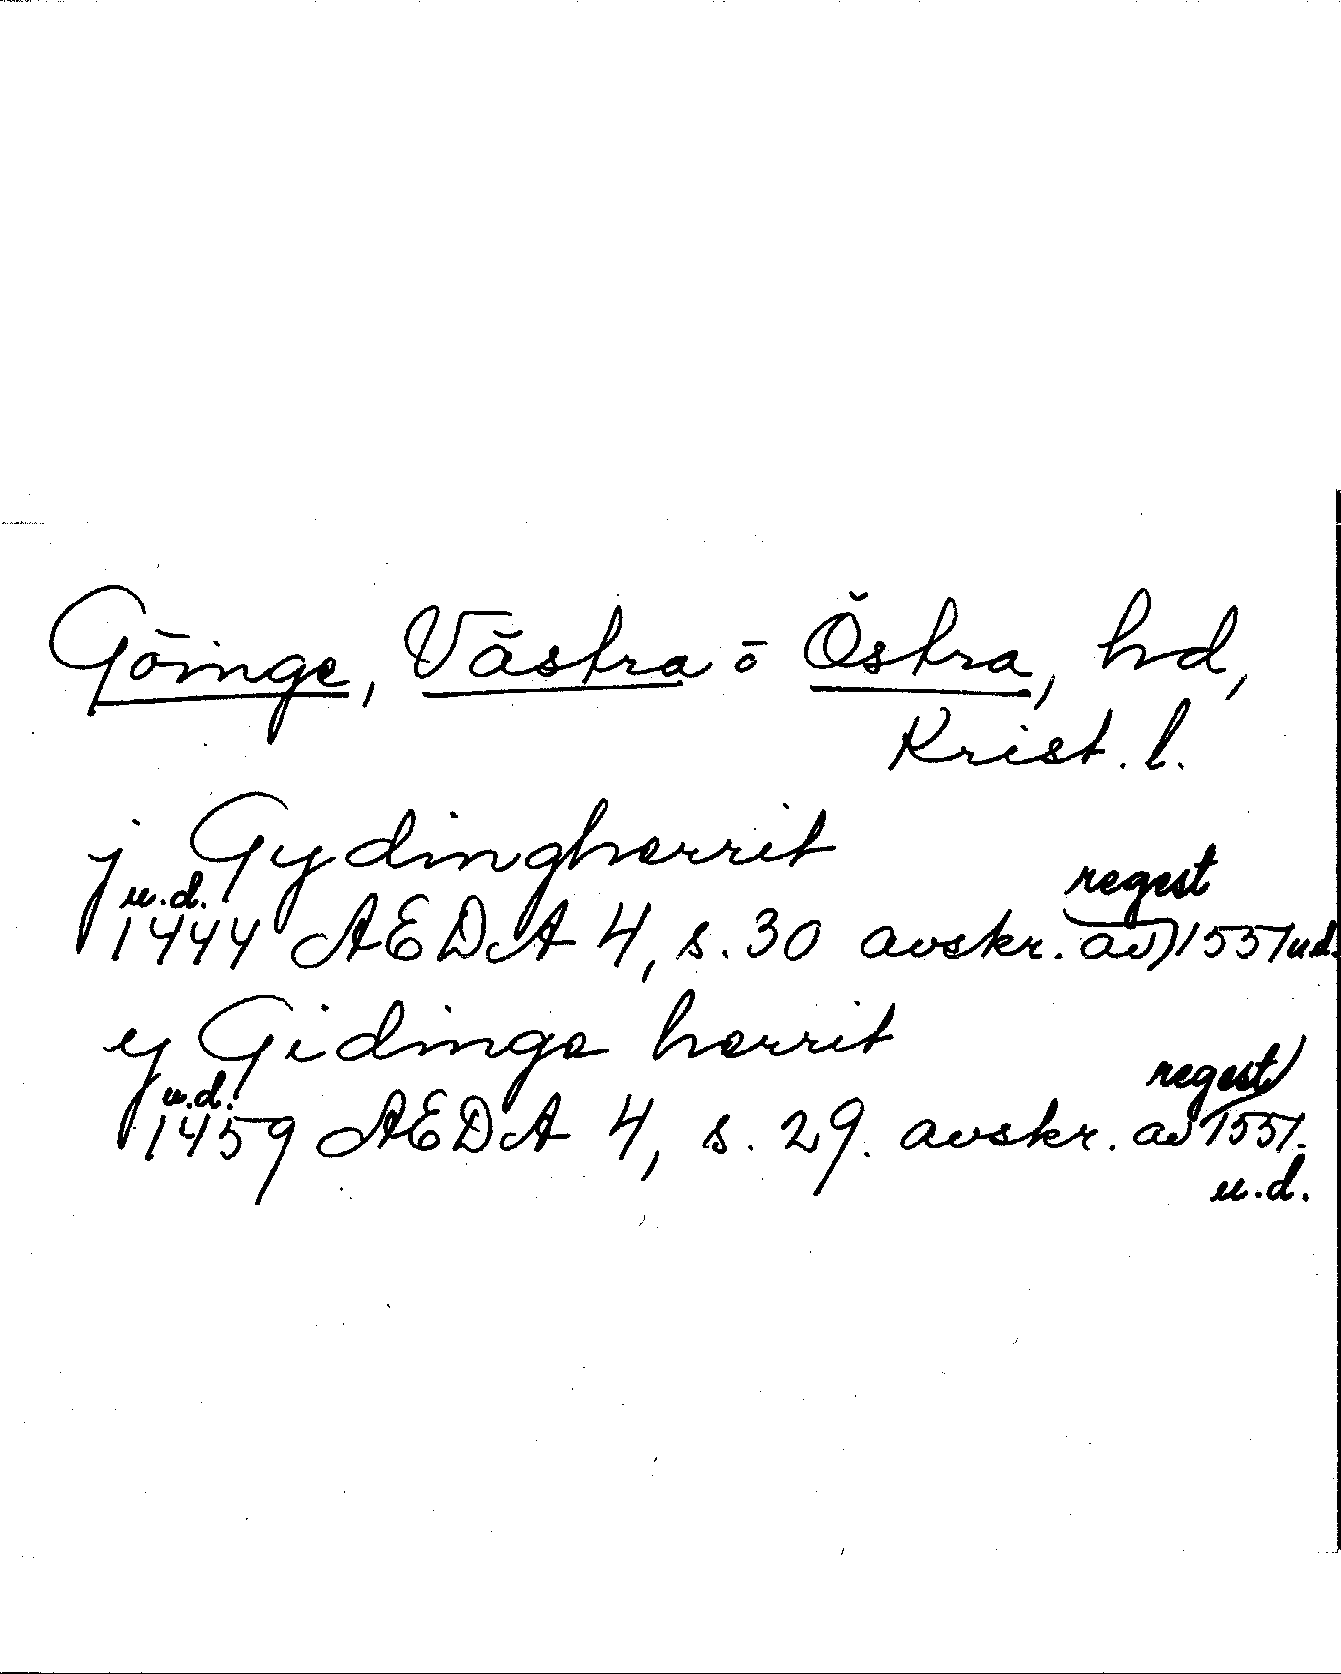 Göinge, Västra o Östra, hd,
Krist. l.
j Gydingherrit
u.d. regest
1444 AEDA 4, s. 30 avskr. av 1551 u.d.
ey Gidinge herrit
u.d. regest
1459 AEDA 4, s. 29. avskr. av 1551.
u.d.